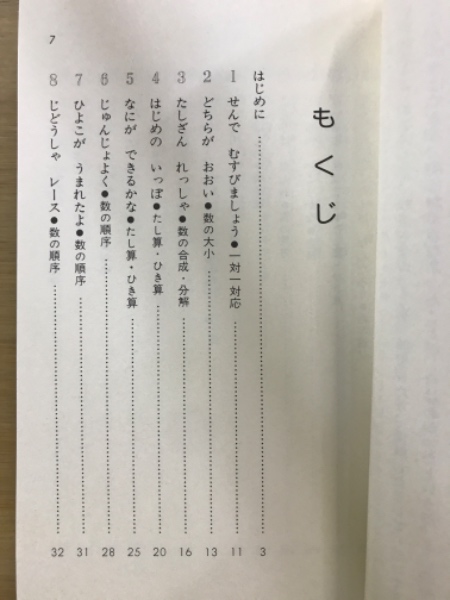 もくじ
はじめに……………………3
1 せんで むすびましょう●一対一対応……………………11
2 どちらが おおい●数の大小……………………13
3 たしざん れっしゃ●数の合成・分解……………………16
4 はじめの いっぽ●たし算・ひき算……………………20
5 なにが できるかな●たし算・ひき算……………………25
6 じゅんじょよく●数の順序……………………28
7 ひよこが うまれたよ●数の順序……………………31
8 じどうしゃ レース●数の順序……………………32
7